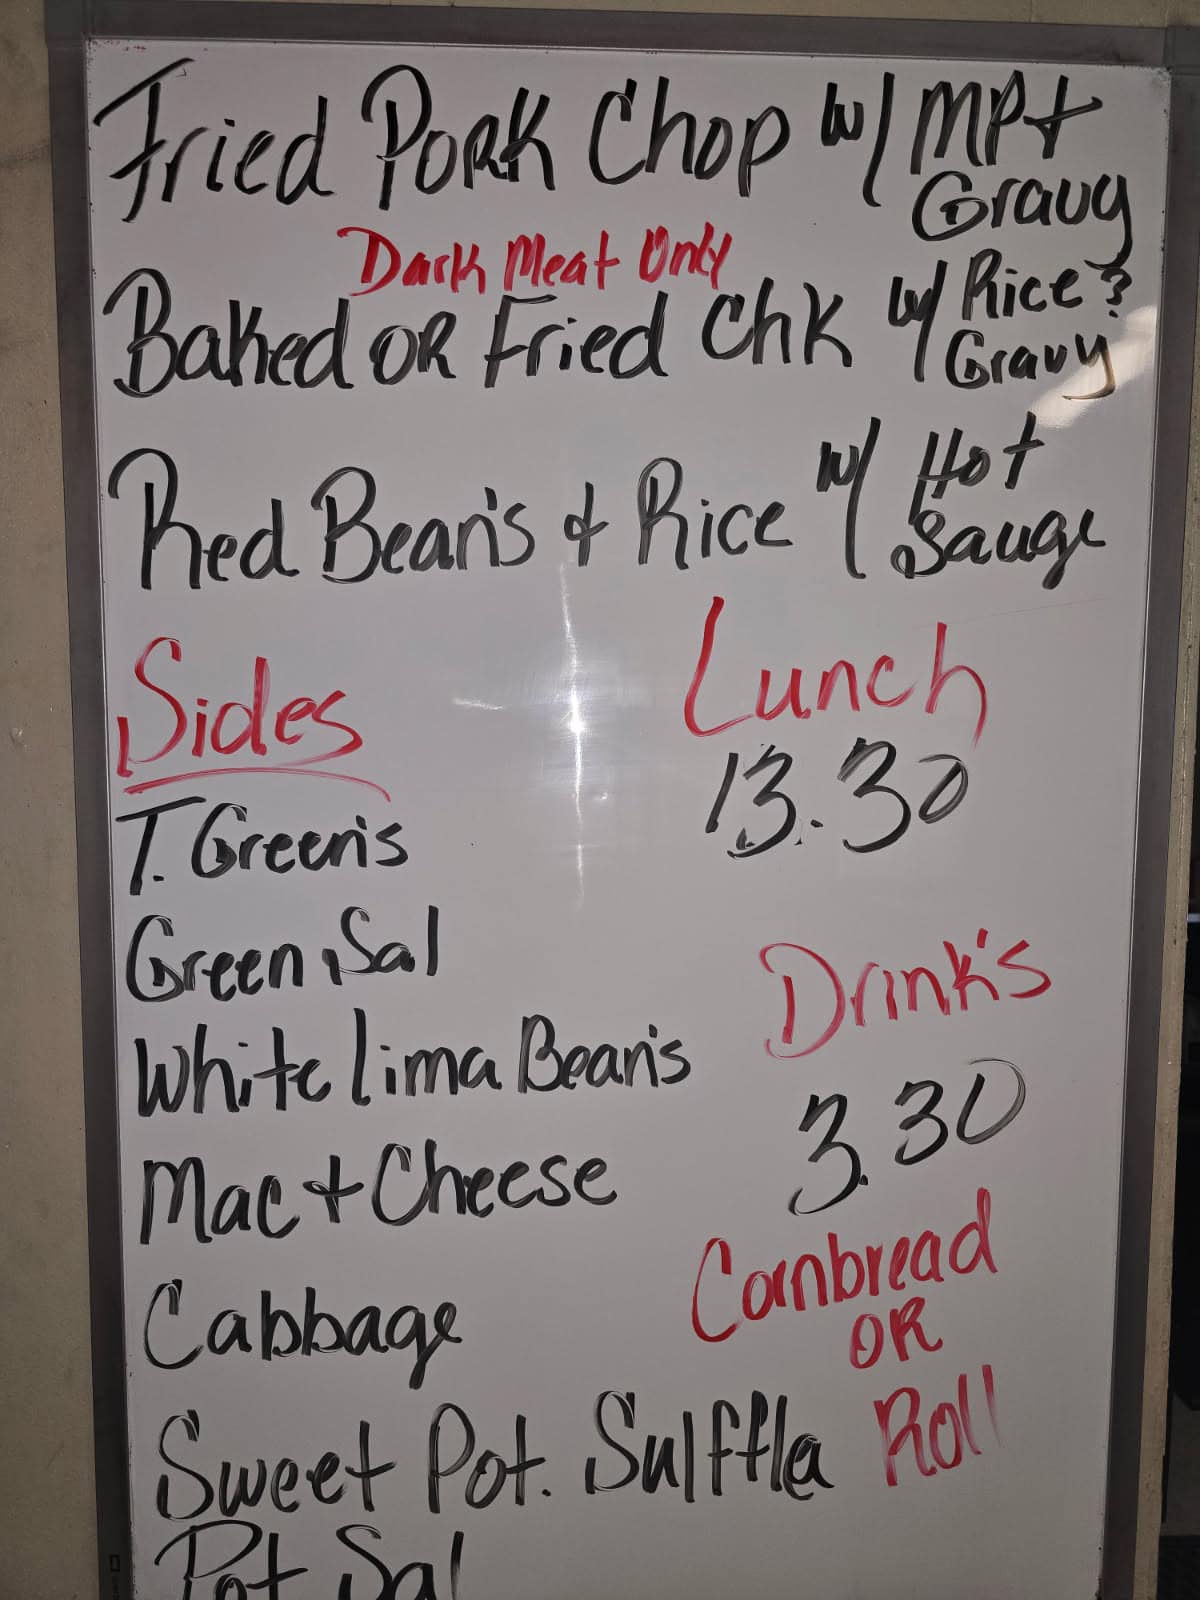 Fried Pork Chop w/ MP+ Gravy
Dark Meat Only
Baked OR Fried Chk w/ Rice & Gravy
Red Bean's + Rice w/ Hot Sauge
Sides
Lunch
13.30
T. Green's
Green Sal
Drink's
3.30
White Lima Bean's
Mac + Cheese
Cornbread
OR
Roll
Cabbage
Sweet Pot. Sulffla
Pot Sal